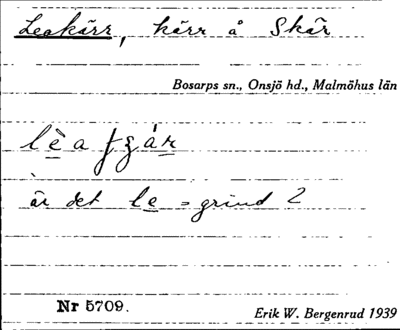 Leakärr, kärr å Skår
Bosarps sn., Onsjö hd., Malmöhus län
är det le = grind ?
Nr 5709.
Erik W. Bergenrud 1939